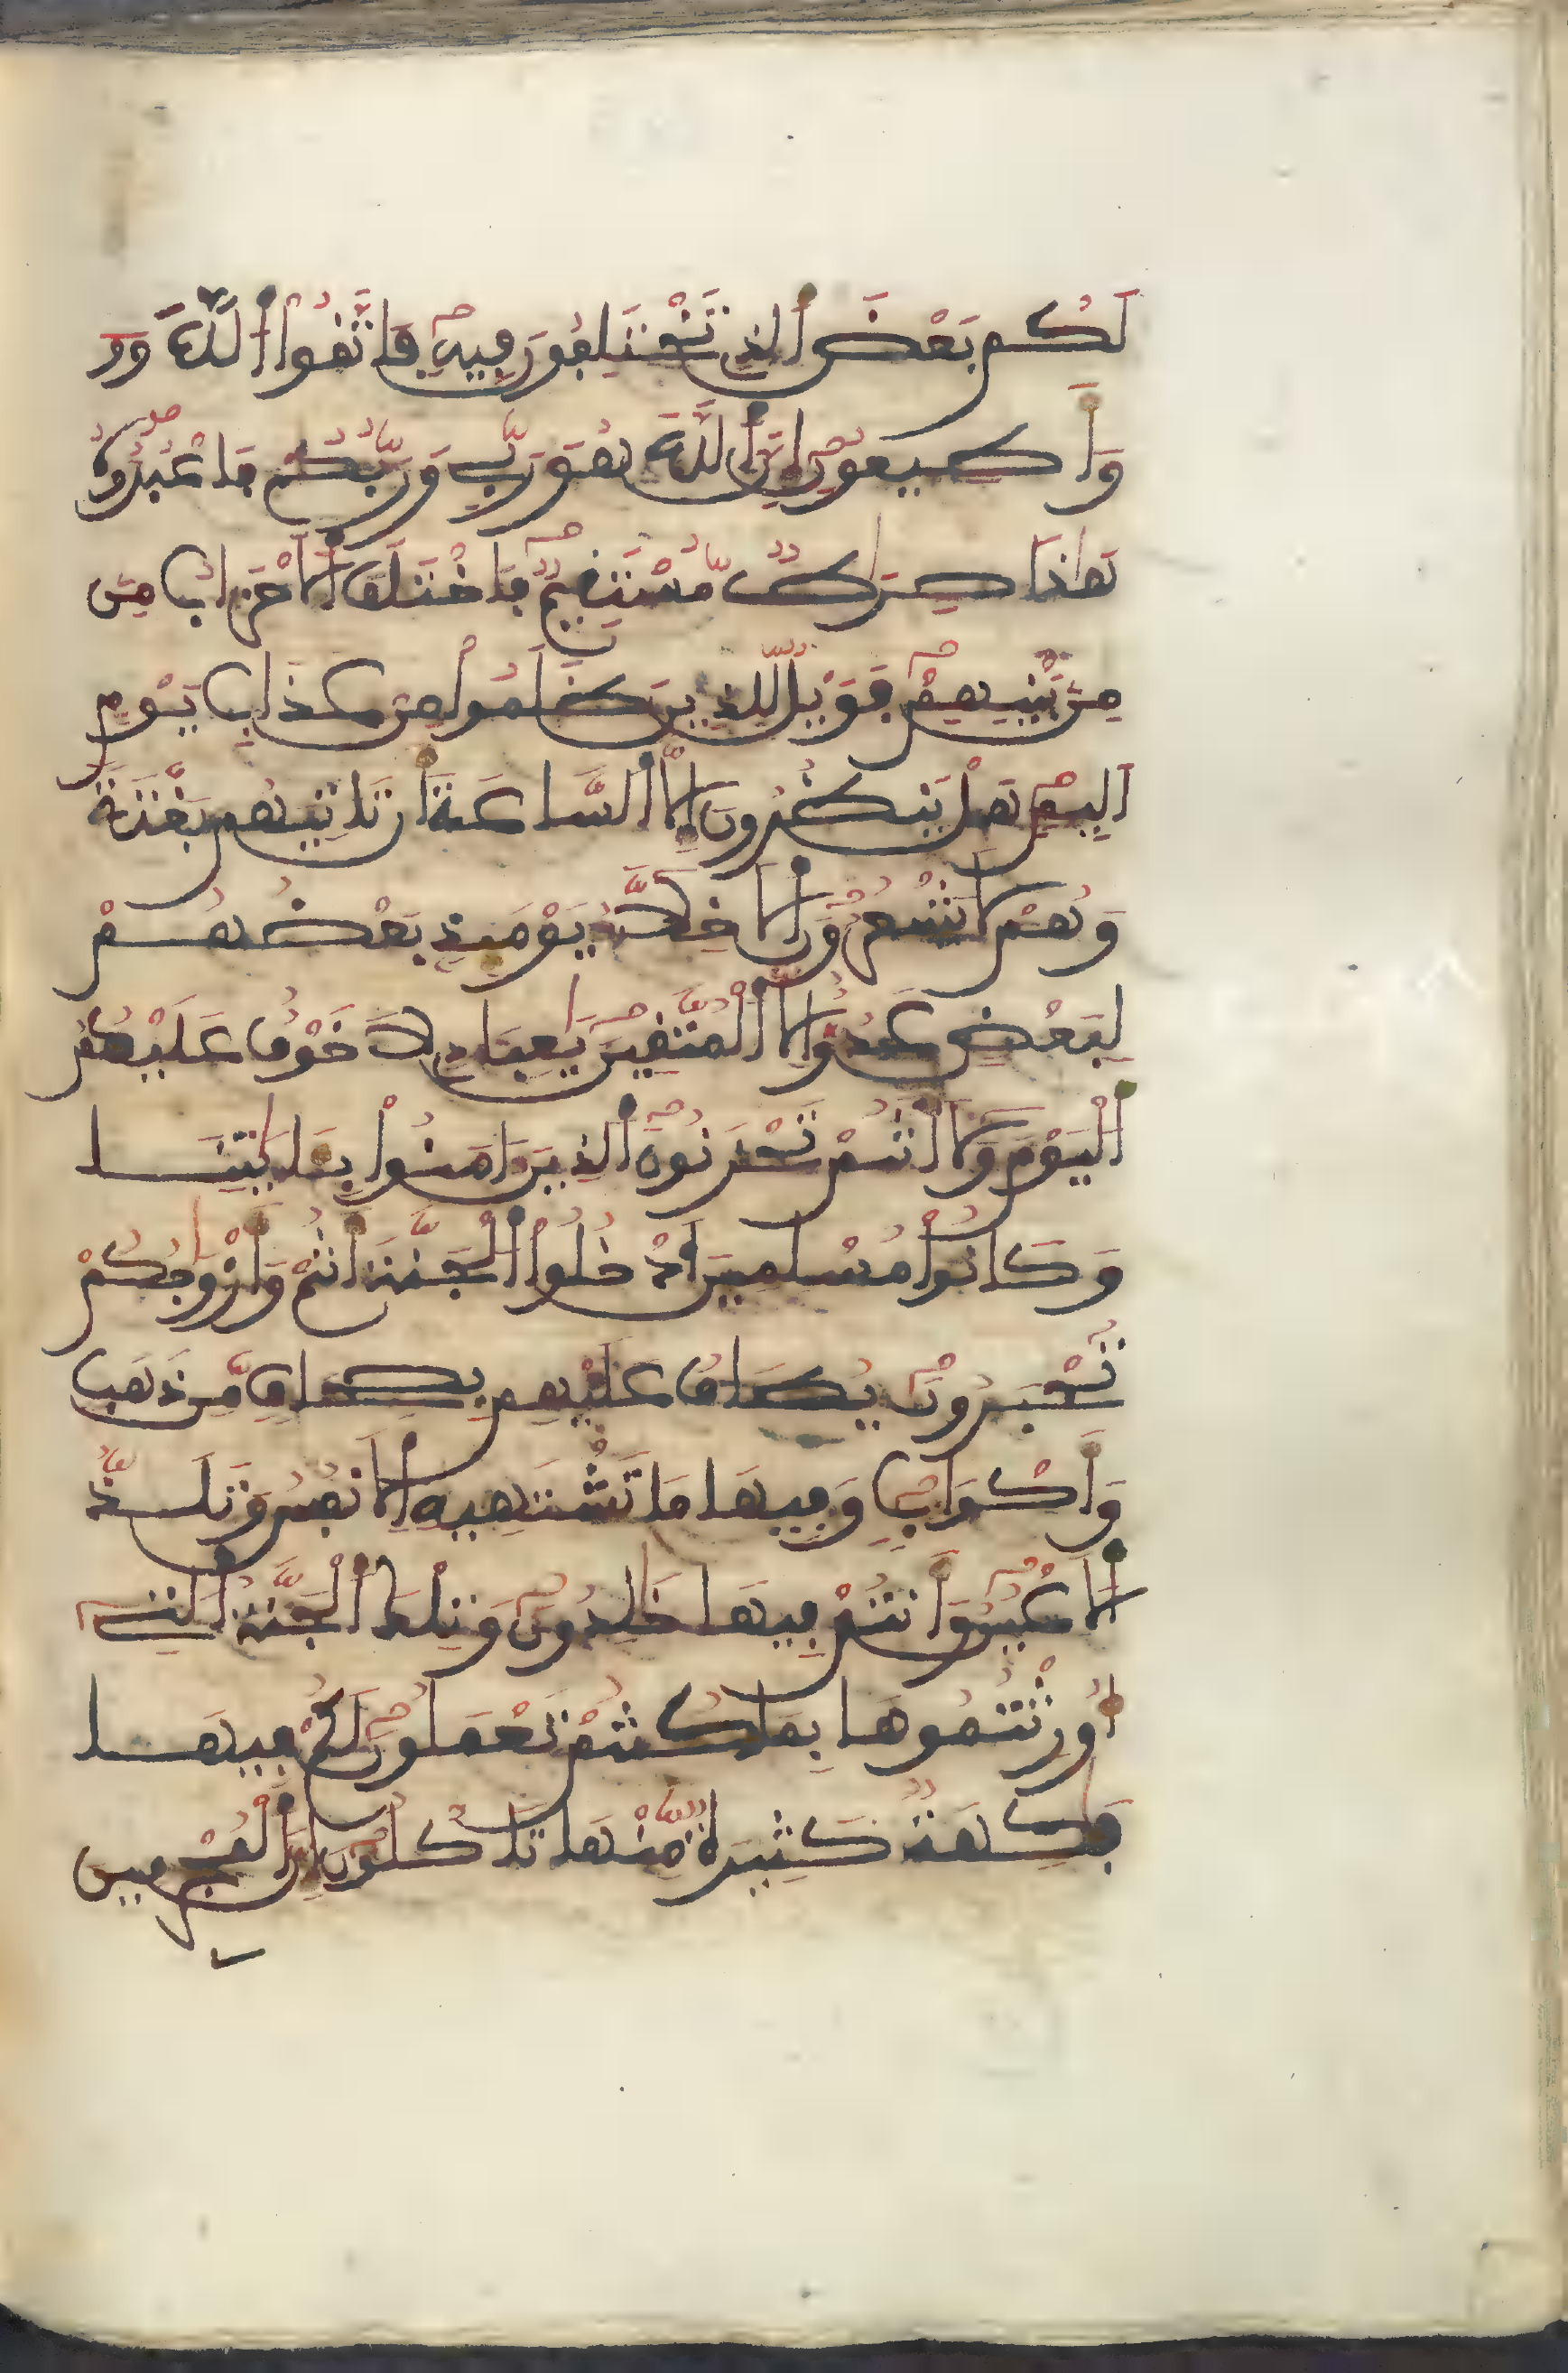 لَكُم بَعْضَ ٱلذِے تَخْتَلِفُونَ فِيهِ فَاتَّقُوا۟ ٱللَّهَ وَ
وَأَطِيعُونِ إِنَّ ٱللَّهَ هُوَ رَبِّے وَرَبُّكُمْ فَاعْبُدُوهُ
هَٰذَا صِرَٰطٌ مُّسْتَقِيمٌ فَاخْتَلَفَ ٱلَاحْزَابُ مِنۢ
مِنۢ بَيْنِهِمْ فَوَيْلٌ لِّلذِينَ ظَلَمُوا۟ مِنْ عَذَابِ يَوْمٍ
اَلِيمٍ هَلْ يَنظُرُونَ إِلَّا ٱلسَّاعَةَ أَن تَاتِيَهُم بَغْتَةً
وَهُمْ لَا يَشْعُرُونَ ٱلَاخِلَّآءُ يَوْمَئِذٍ بَعْضُهُمْ
لِبَعْضٍ عَدُوٌّ اِلَّا ٱلْمُتَّقِينَ يَٰعِبَادِے لَا خَوْفٌ عَلَيْكُمُ
ٱلْيَوْمَ وَلَآ أَنتُمْ تَحْزَنُونَ ٱلذِينَ ءَامَنُوا۟ بِـَٔايَٰتِنَا
وَكَانُوا۟ مُسْلِمِينَ اَدْخُلُوا۟ ٱلْجَنَّةَ أَنتُمْ وَأَزْوَٰجُكُمْ
تُحْبَرُونَ يُطَافُ عَلَيْهِم بِصِحَافٍ مِّن ذَهَبٍ
وَأَكْوَابٍ وَفِيهَا مَا تَشْتَهِيهِ ٱلَانفُسُ وَتَلَذُّ
ٱلَاعْيُنُ وَأَنتُمْ فِيهَا خَٰلِدُونَ وَتِلْكَ ٱلْجَنَّةُ ٱلتِے
أُورِثْتُمُوهَا بِمَا كُنتُمْ تَعْمَلُونَ لَكُمْ فِيهَا
فَٰكِهَةٌ كَثِيرَةٌ مِّنْهَا تَاكُلُونَ إِنَّ ٱلْمُجْرِمِينَ